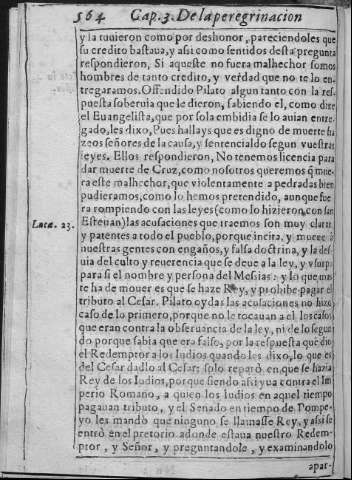 564 Cap. 3. De la peregrinacion
y la tuuieron como por deshonor, pareciendoles que
su credito bastaua, y assi como sentidos desta pregunta
respondieron, Si aqueste no fuera malhechor somos
hombres de tanto credito, y verdad que no te lo en-
tregaramos. Offendido Pilato algun tanto con la res-
puesta soberuia que le dieron, sabiendo el, como dize
el Euangelista, que por sola embidia se lo auian entre-
gado, les dixo, Pues hallays que es digno de muerte ha
zeos señores de la causa, y sentencialdo segun vuestras
leyes. Ellos respondieron, No tenemos licencia para
dar muerte de Cruz, como nosotros queremos q̃ mue-
ra este malhechor, que violentamente a pedradas bien
pudieramos, como lo hemos pretendido, aunque fue
ra rompiendo con las leyes (como lo hizieron con san
Esteuan) las acusaciones que traemos son muy claras
Lucæ. 23.
y patentes a todo el pueblo, porque incita, y mueue à
nuestras gentes con engaños, y falsa doctrina, y la des
uia del culto y reuerencia que se deue a la ley, y vsurpa
para si el nombre y persona del Mesias: y lo que mas
te ha de mouer es que se haze Rey, y prohibe pagar el
tributo al Cesar. Pilato oydas las acusaciones no hizo
caso de lo primero, porque no le tocauan a el los casos
que eran contra la obseruancia de la ley, ni de lo segun
do porque sabia que era falso, por la respuesta que dio
el Redemptor a los Iudios quando les dixo, lo que es
del Cesar dadlo al Cesar: solo reparò en que se hazia
Rey de los Iudios, porque siendo assi yua contra el Im
perio Romano, a quien los Iudios en aquel tiempo
pagauan tributo, y el Senado en tiempo de Pompe-
yo les mandò que ninguno se llamasse Rey, y assi se
entrò en el pretorio adonde estaua nuestro Redem-
ptor, y Señor, y preguntandole, y examinandolo
apar-